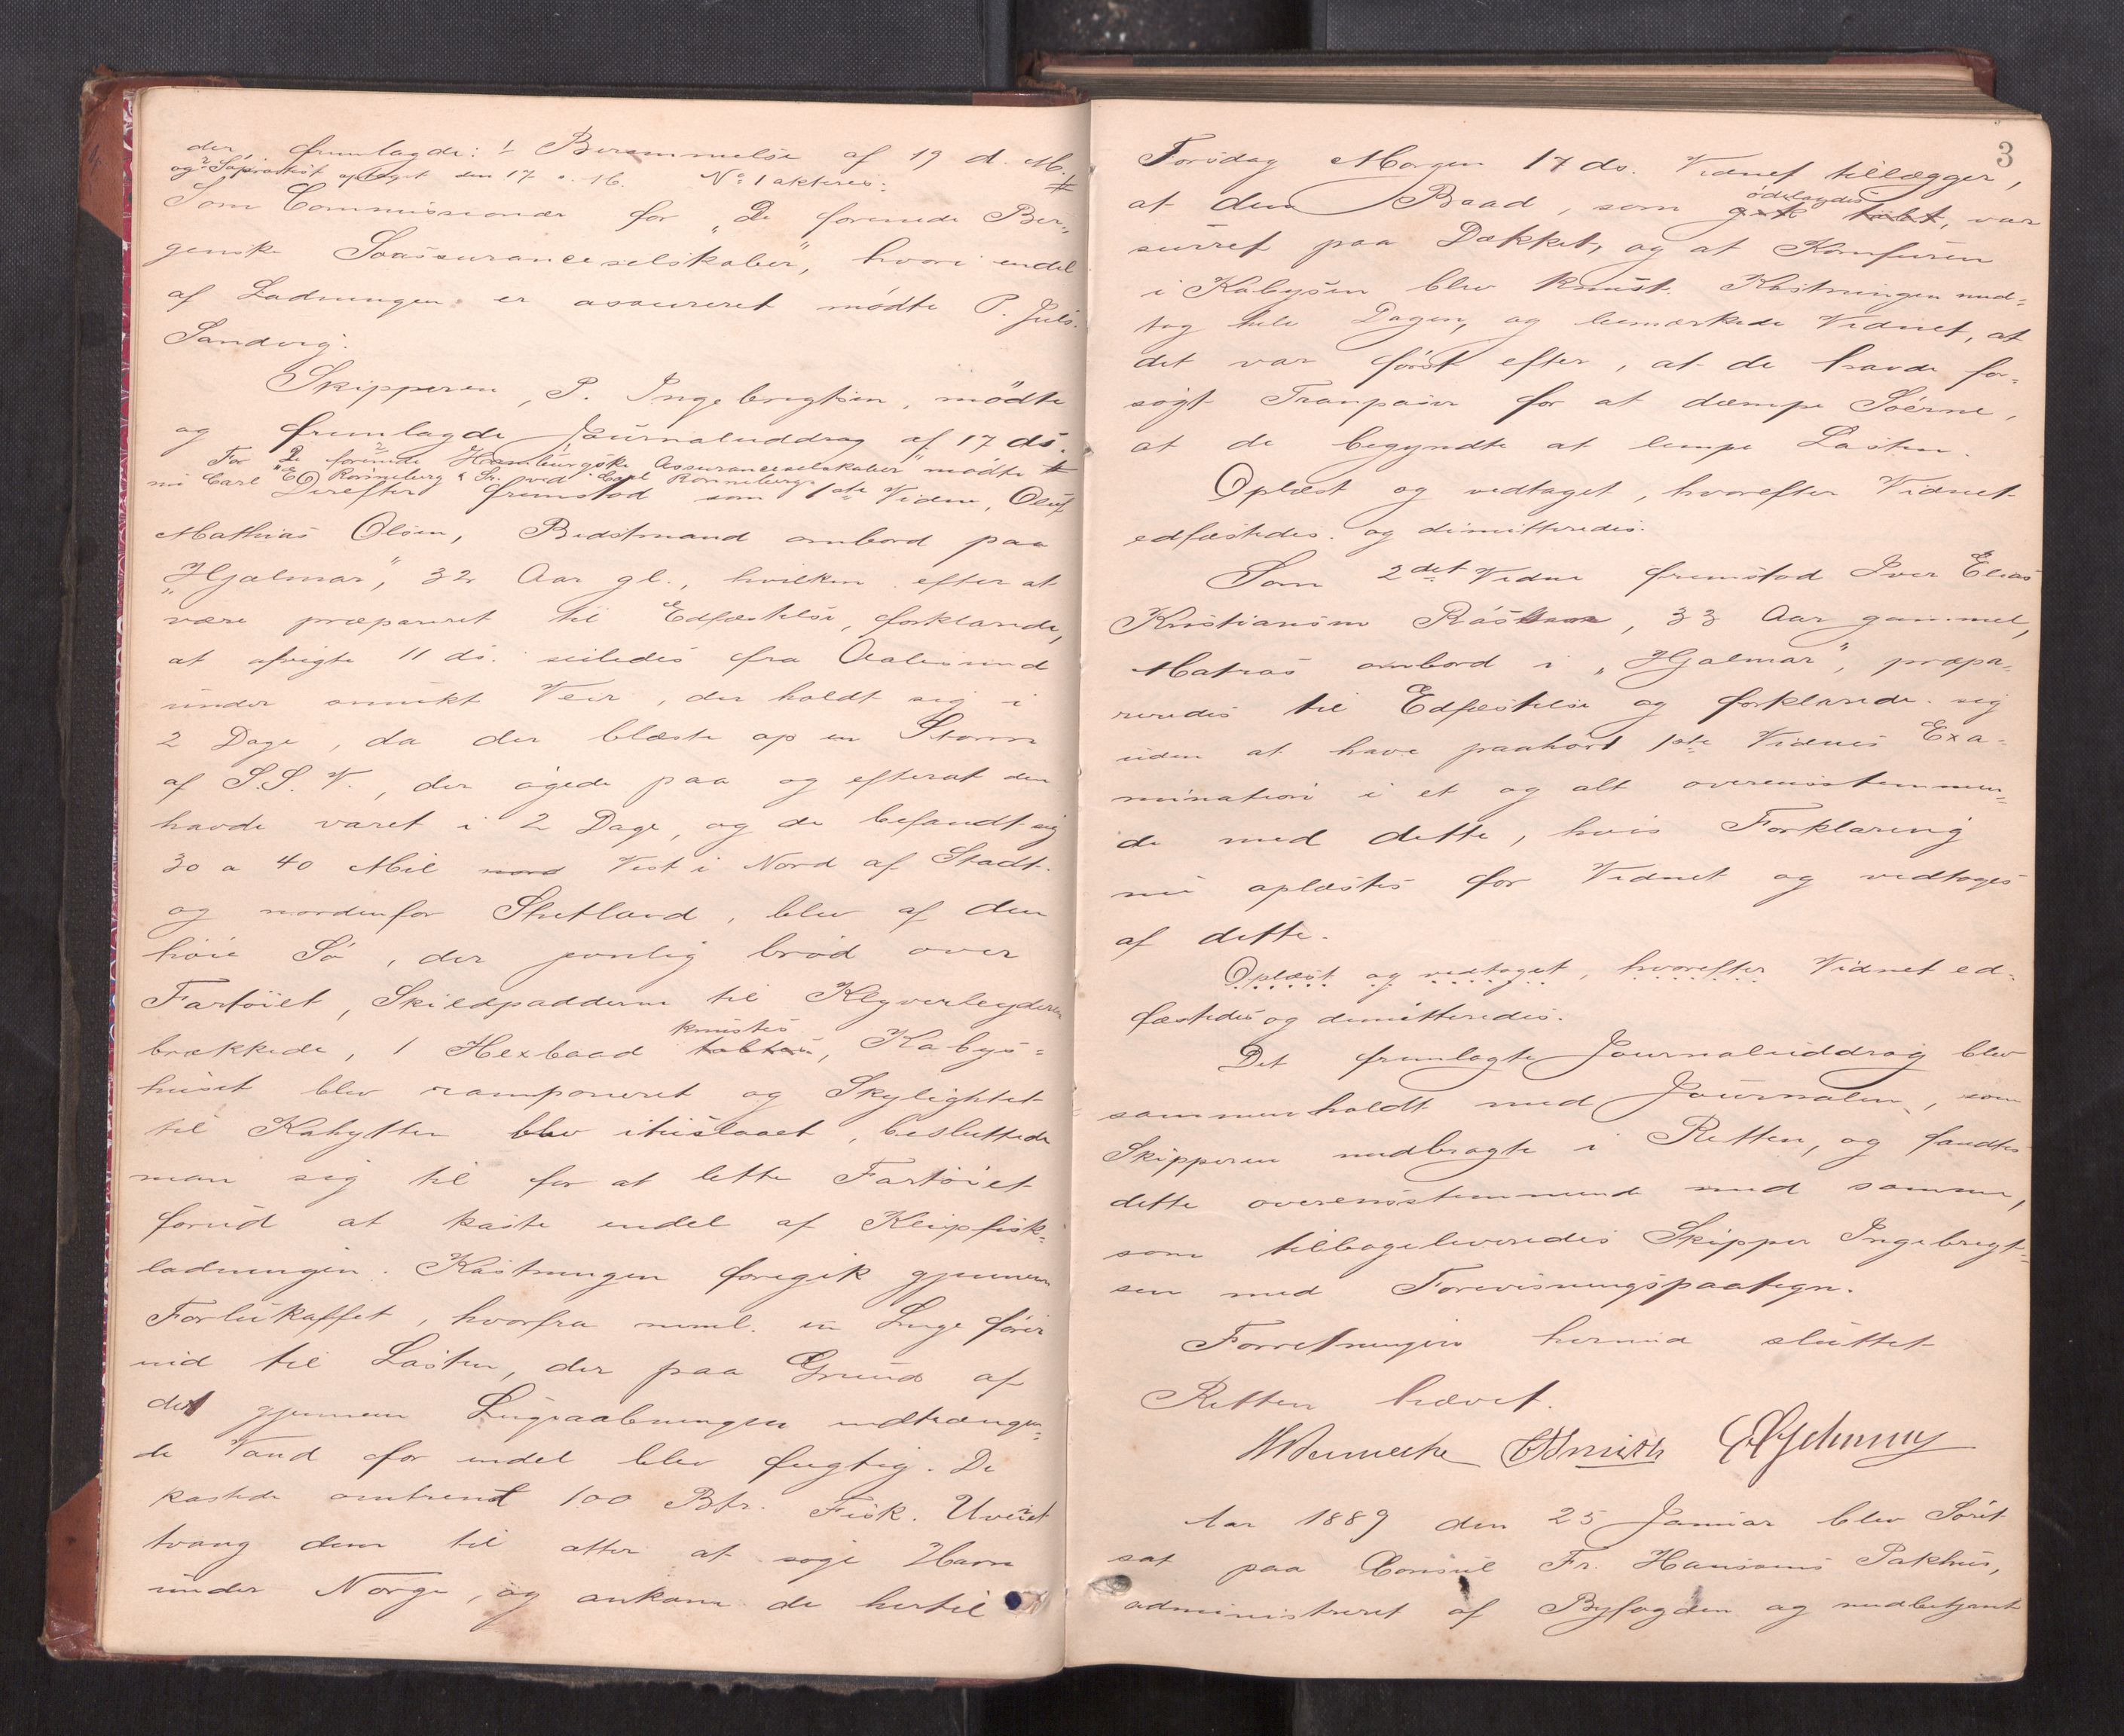 der fremlagde: 1 Berammelse af 19 d. M.
og 2 Søprotest optaget den 17 s. M. No 1 akteres: #
Som Commissionær for „De forenede Ber-
genske Søassuranceselskaber", hvori endel
af Ladningen er assureret mødte P. Juls.
Sandvig.
Skipperen, P. Ingebrigtsen, mødte
og fremlagde Journaluddrag af 17 ds.
For „De forenede Hamburgske Assuranceselskaber" mødte #
Carl E Rønneberg & Sr. ved Carl Rønneberg.
Derefter fremstod som 1ste Vidne, Oluf
Mathias Olsen, Bedstmand ombord paa
„Hjalmar", 32 Aar gl., hvilken efter at
være præpareret til Edfæstelse, forklarede,
at afvigte 11 ds. seiledes fra Aalesund
under smukt Veir, der holdt sig i
2 Dage, da der blæste op en Storm
af S.S.V., der øgede paa og efterat den
havde varet i 2 Dage, og de befandt sig
30 a 40 Mil nord Vest i Nord af Stadt
og nordenfor Shetland, blev af den
høie Sø, der jevnlig brød over
Fartøiet, Skildpadderne til Klyverleyderen
knustes
brækkede, 1 Hexbaad tabtes, Kabys-
huset blev ramponeret og Skylightet
til Kahytten blev ituslaaet, besluttede
man sig til for at lette Fartøiet
forud at kaste endel af Klipfisk-
ladningen. Kastningen foregik gjennem
Forlukaffet, hvorfra neml. en Luge fører
ned til Lasten, der paa Grund af
det gjennem Lugeaabningen indtrængen-
de Vand for endel blev fugtig. De
kastede omtrent 100 Btr. Fisk. Uveiret
tvang dem til atter at søge Havn
under Norge, og ankom de hertil
3
Torsdag Morgen 17 ds. Vidnet tillægger,
ødelagdes
at den Baad, som gik tabt, var
surret paa Dækket, og at Komfuren
i Kabysen blev knust. Kastningen med-
tog hele Dagen, og bemærkede Vidnet, at
det var først efter, at de havde for-
søgt Tranposer for at dæmpe Søerne,
at de begyndte at lempe Lasten.
Oplæst og vedtaget, hvorefter Vidnet
edfæstedes og dimitteredes.
Som 2det Vidne fremstod Iver Elias
Kristiansen, 33 Aar gammel,
Matros ombord i „Hjalmar", præpa-
reredes til Edfæstelse og forklarede sig
uden at have paahørt 1ste Vidnes Exa-
mination i et og alt overensstemmen-
de med dette, hvis Forklaring
nu oplæstes for Vidnet og vedtoges
af dette.
Oplæst og vedtaget, hvorefter Vidnet ed-
fæstedes og dimitteredes.
Det fremlagte Journaluddrag blev
sammenholdt med Journalen, som
Skipperen medbragte i Retten, og fandtes
dette overensstemmende med samme,
som tilbageleveredes Skipper Ingebrigt-
sen med Forevisningspaategn.
Forretningen hermed sluttet
Retten hævet.
Aar 1889 den 25 Januar blev Søret
sat paa Consul Fr. Hansens Pakhus,
administreret af Byfogden og medbetjent